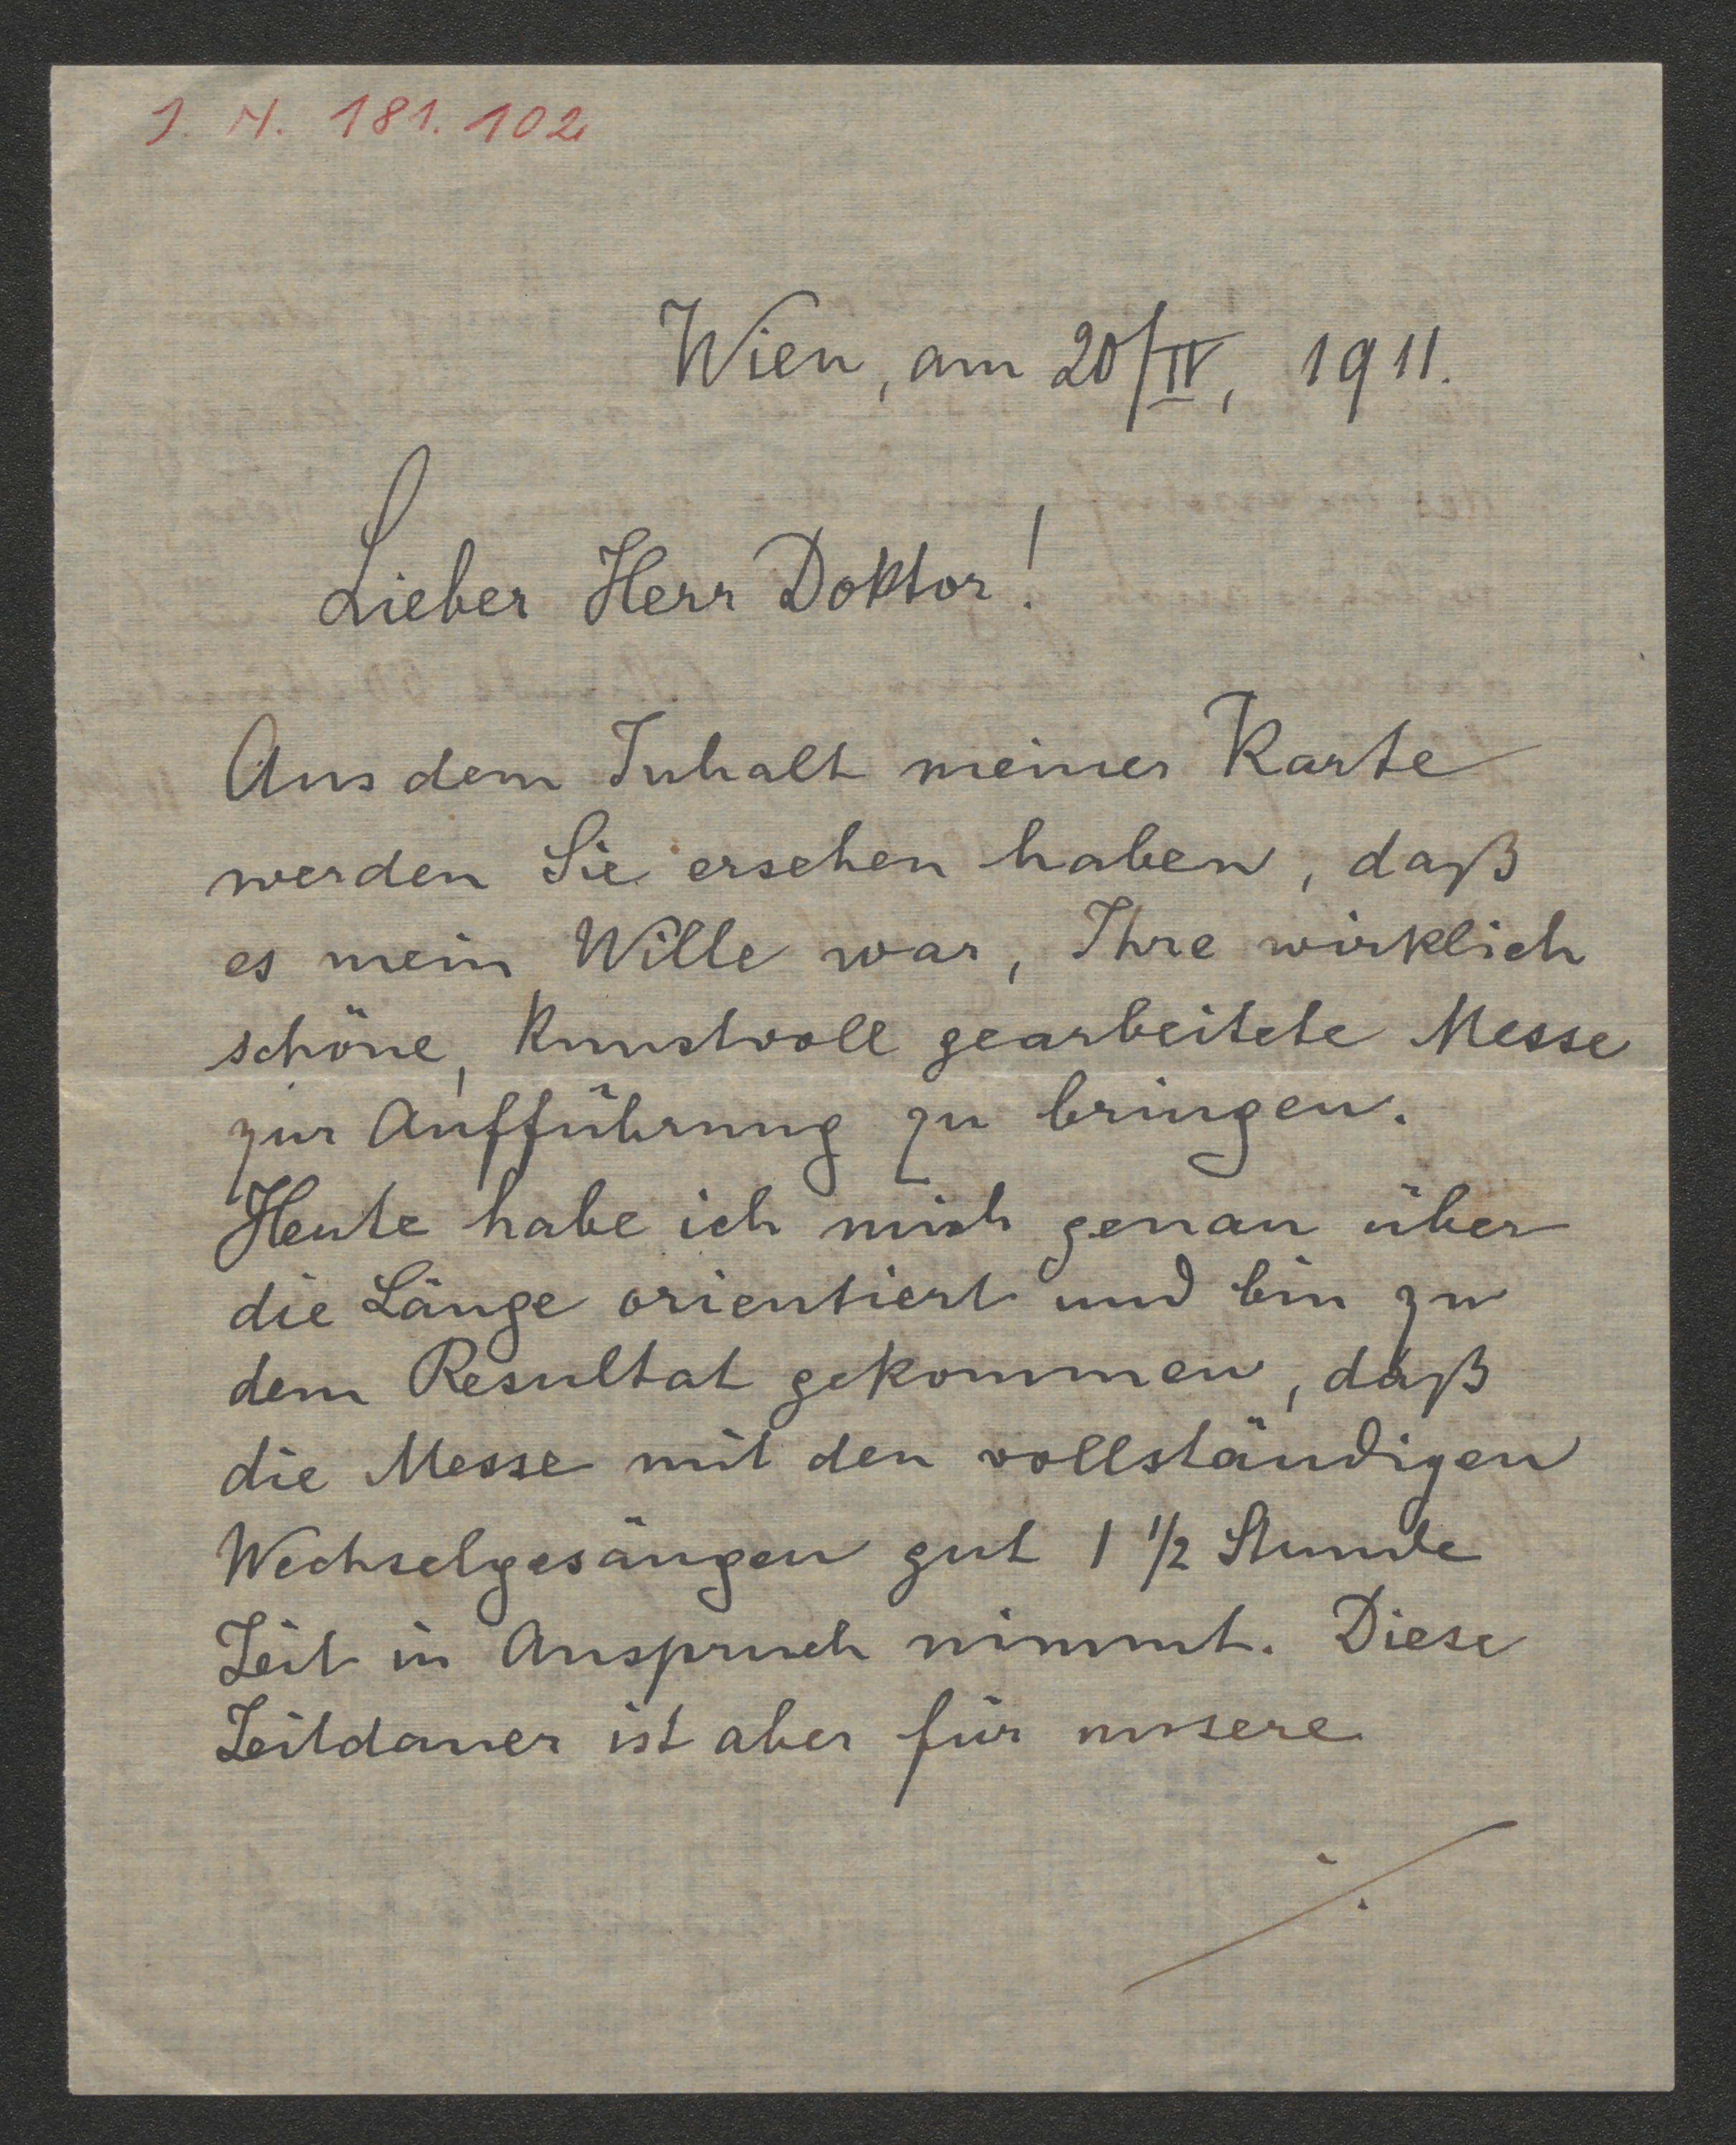 J. N. 181.102
Wien, am 20/IV, 1911.
Lieber Herr Doktor!
Aus dem Inhalt meiner Karte
werden Sie ersehen haben, daß
es mein Wille war, Ihre wirklich
schöne, kunstvoll gearbeitete Messe
zur Aufführung zu bringen.
Heute habe ich mich genau über
die Länge orientiert und bin zu
dem Resultat gekommen, daß
die Messe mit den vollständigen
Wechselgesängen gut 1 1/2 Stunde
Zeit in Anspruch nimmt. Diese
Zeitdauer ist aber für unsere
./.